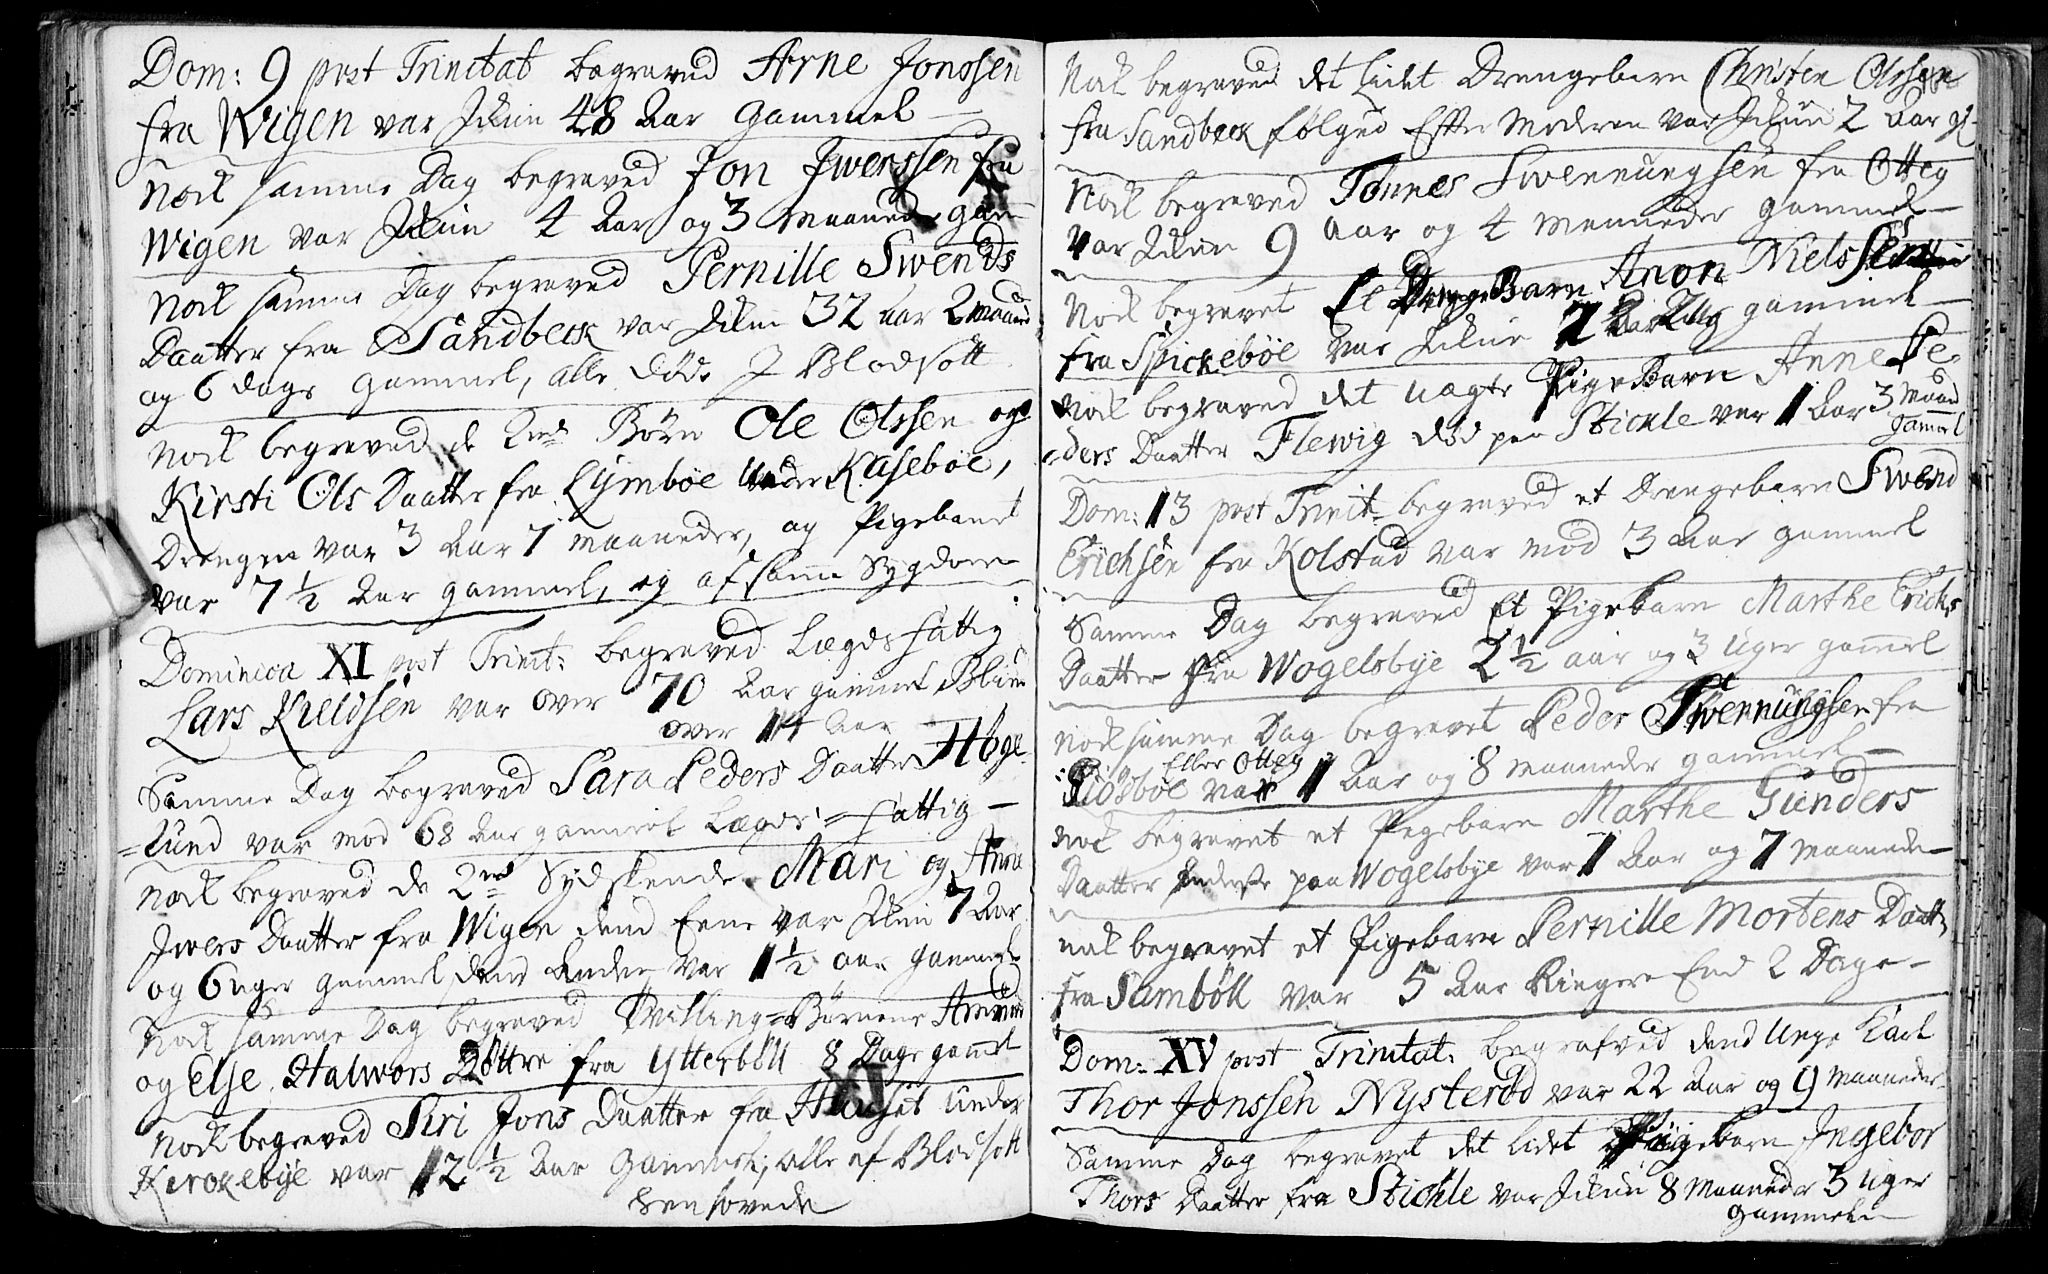 Dom: 9 post Trinitat begraved Arne Jonssen
fra Wigen var 48 Aar Gammel
Nock samme Dag begraved Jon Jwerssen fra
Wigen var 4 Aar og 3 Maaneder gam
Nock samme Dag begraved Pernille Swends
Daatter fra Sandbeck var 32 aar 2 Maaned
og 6 dage gammel, alle døde J Blodsott
Nock begraved de 2nde Børn Ole Olssen og
Kirsti Ols Daatter fra Lÿmboe under Kaseboe,
Drengen var 3 Aar 7 Maaneder, og Pigebarnet
var 7 ½ Aar gammel, og af samme Sygdom
Dominica XI post Trinit: begraved Lægds fattig
Lars Kieldsen var over 70 Aar gammel Blind
over 14 Aar
Samme Dag begraved Sara Peders Daatter Høge
=lund var mod 68 Aar gammel Lægds=fattig
Nock begraved de 2nde Sydskende Mari og Anna
Jwers Daatter fra Wigen dend Eene var 7 Aar
og 6 uger gammel dend Anden var 1 ½ aar gammel
Nock samme Dag begraved Tvilling=Børnene
og Else Halwors Døttre fra Ytterböll 8 Dage gammel
Nock begraved Siri Jons Daatter fra Huuset under
Kirckebÿe var 12 ½ Aar Gammel, alle af Blodsott
hensovede
Nock begraved det lidet Drengebarn Christen Olssen
fra Sandbeck følged Efter Moderen var 2 Aar gl
Nock begraved Tønnes Swennungsen fra Otteg
var 9 aar og 4 Maaneder gammel
Nock begravet Et DrengeBarn Aron Nielssen
fra Spickebøe var gammel
Nock begraved det uægte PigeBarn Anne Pe
=ders Daatter Flewig død paa Stichle var 1 Aar 3 Maaned
Gammel
Dom: 13 post Trinit begraved et Drengebarn Swend
Erichsen fra Kolstad var mod 3 Aar gammel
Samme Dag begraved Et Pigebarn Marthe Erichs
Daatter fra Wogelsbÿe 2 ½ aar og 3 Uger gammel
Nock samme Dag begravet Peder Swennungsen fra
Eller Otteg
Riösböe var 1 Aar og 8 Maaneder gammel
Nock begravet et Pigebarn Marthe Gunders
Daatter paa Wogelsbÿe var 1 Aar og 7 Maaneder
nock begravet et Pigebarn Pernille Mortens Daatt
fra Samböll var 5 Aar Ringere End 2 Dage
Dom: XV post Trinitat: begrafved dend Unge Karl
Thor Jonssen Nysterød var 22 Aar og 9 Maaneder
Samme Dag begravet det lidet Pigebarn Ingebor
Thors Daatter fra Stichle var 8 Maaneder 3 Uger
gammel